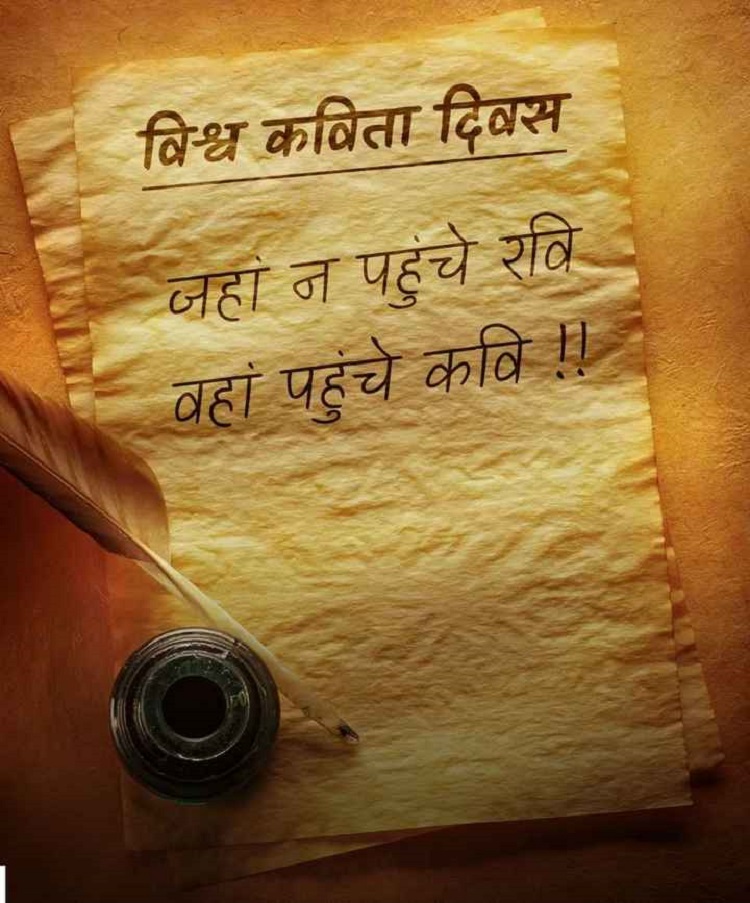 विश्व कविता दिवस
जहां न पहुंचे रवि
वहां पहुंचे कवि !!